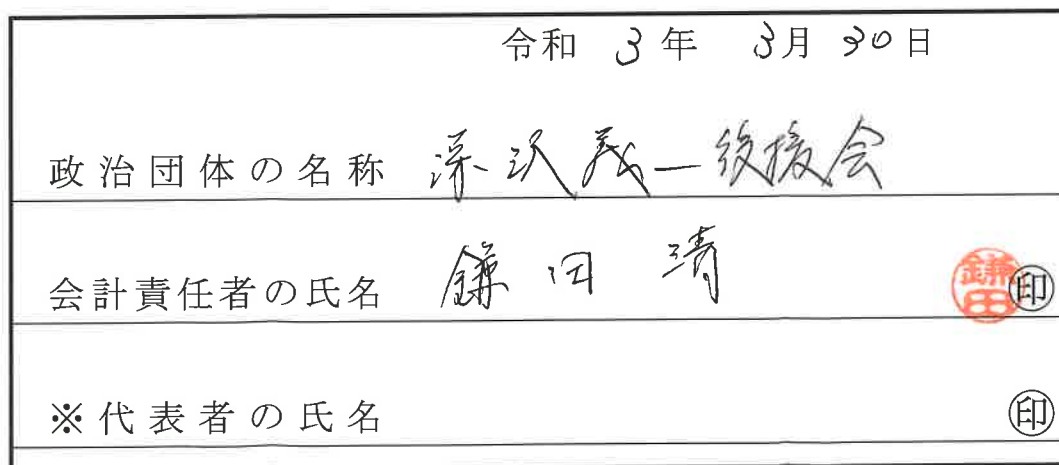 令和 3年 3月 30日
政治団体の名称 深沢義一後援会
会計責任者の氏名 鎌田 清 鎌田 ㊞
※代表者の氏名 ㊞